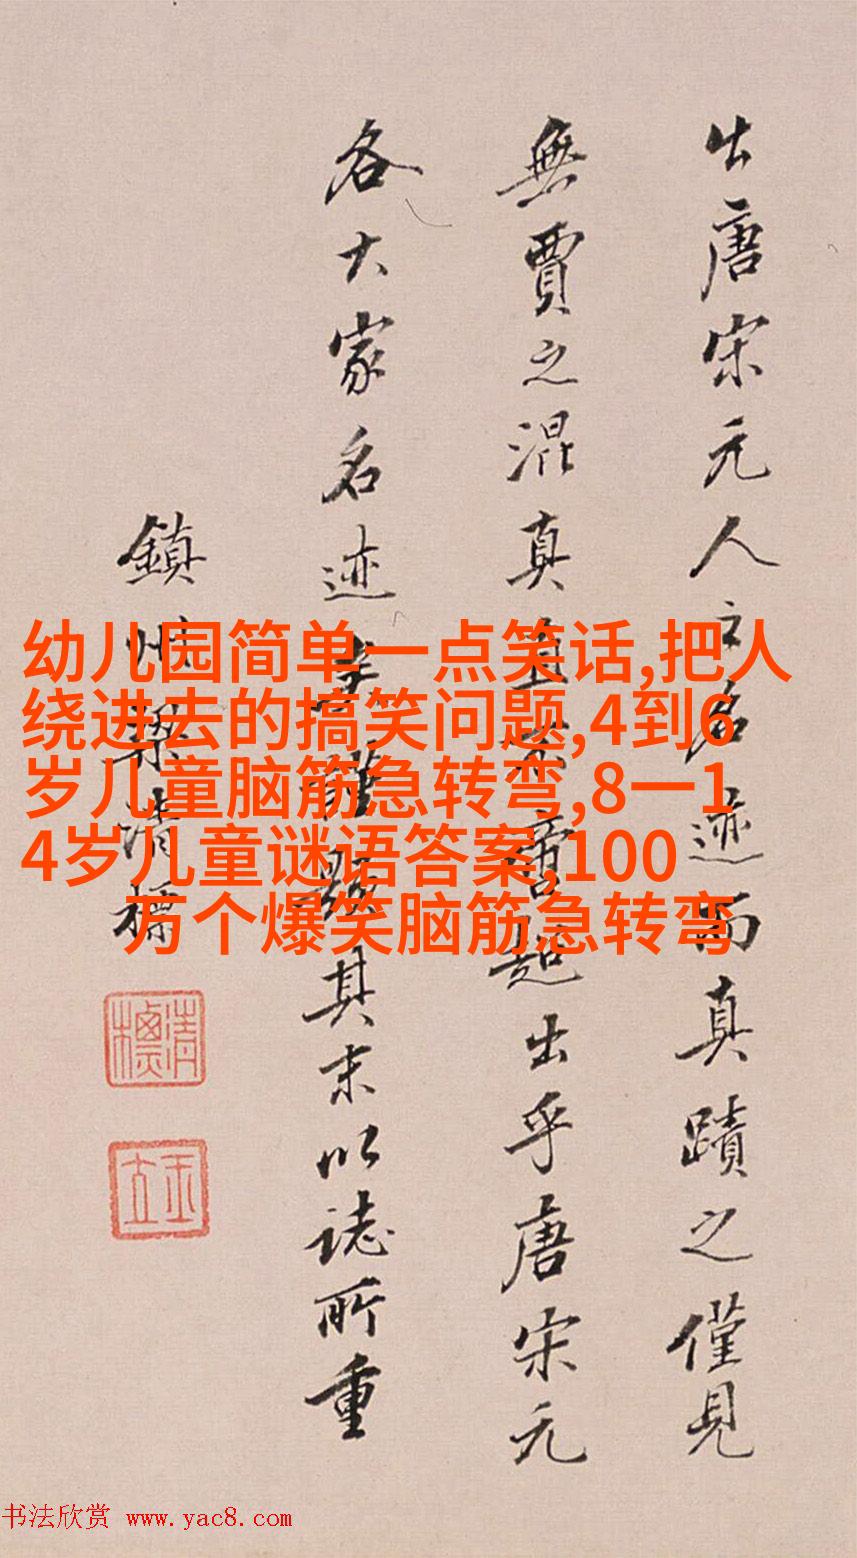 出唐宋元人之名迹而真蹟之僅見
無賈之混真啻超出乎唐宋元
各大家名迹謹題其末以誌所重
鎮州梁清標
清標
玉立
幼儿园简单一点笑话,把人
绕进去的搞笑问题,4到6
岁儿童脑筋急转弯,8一1
4岁儿童谜语答案,100
万个爆笑脑筋急转弯
书法欣赏 www.yac8.com